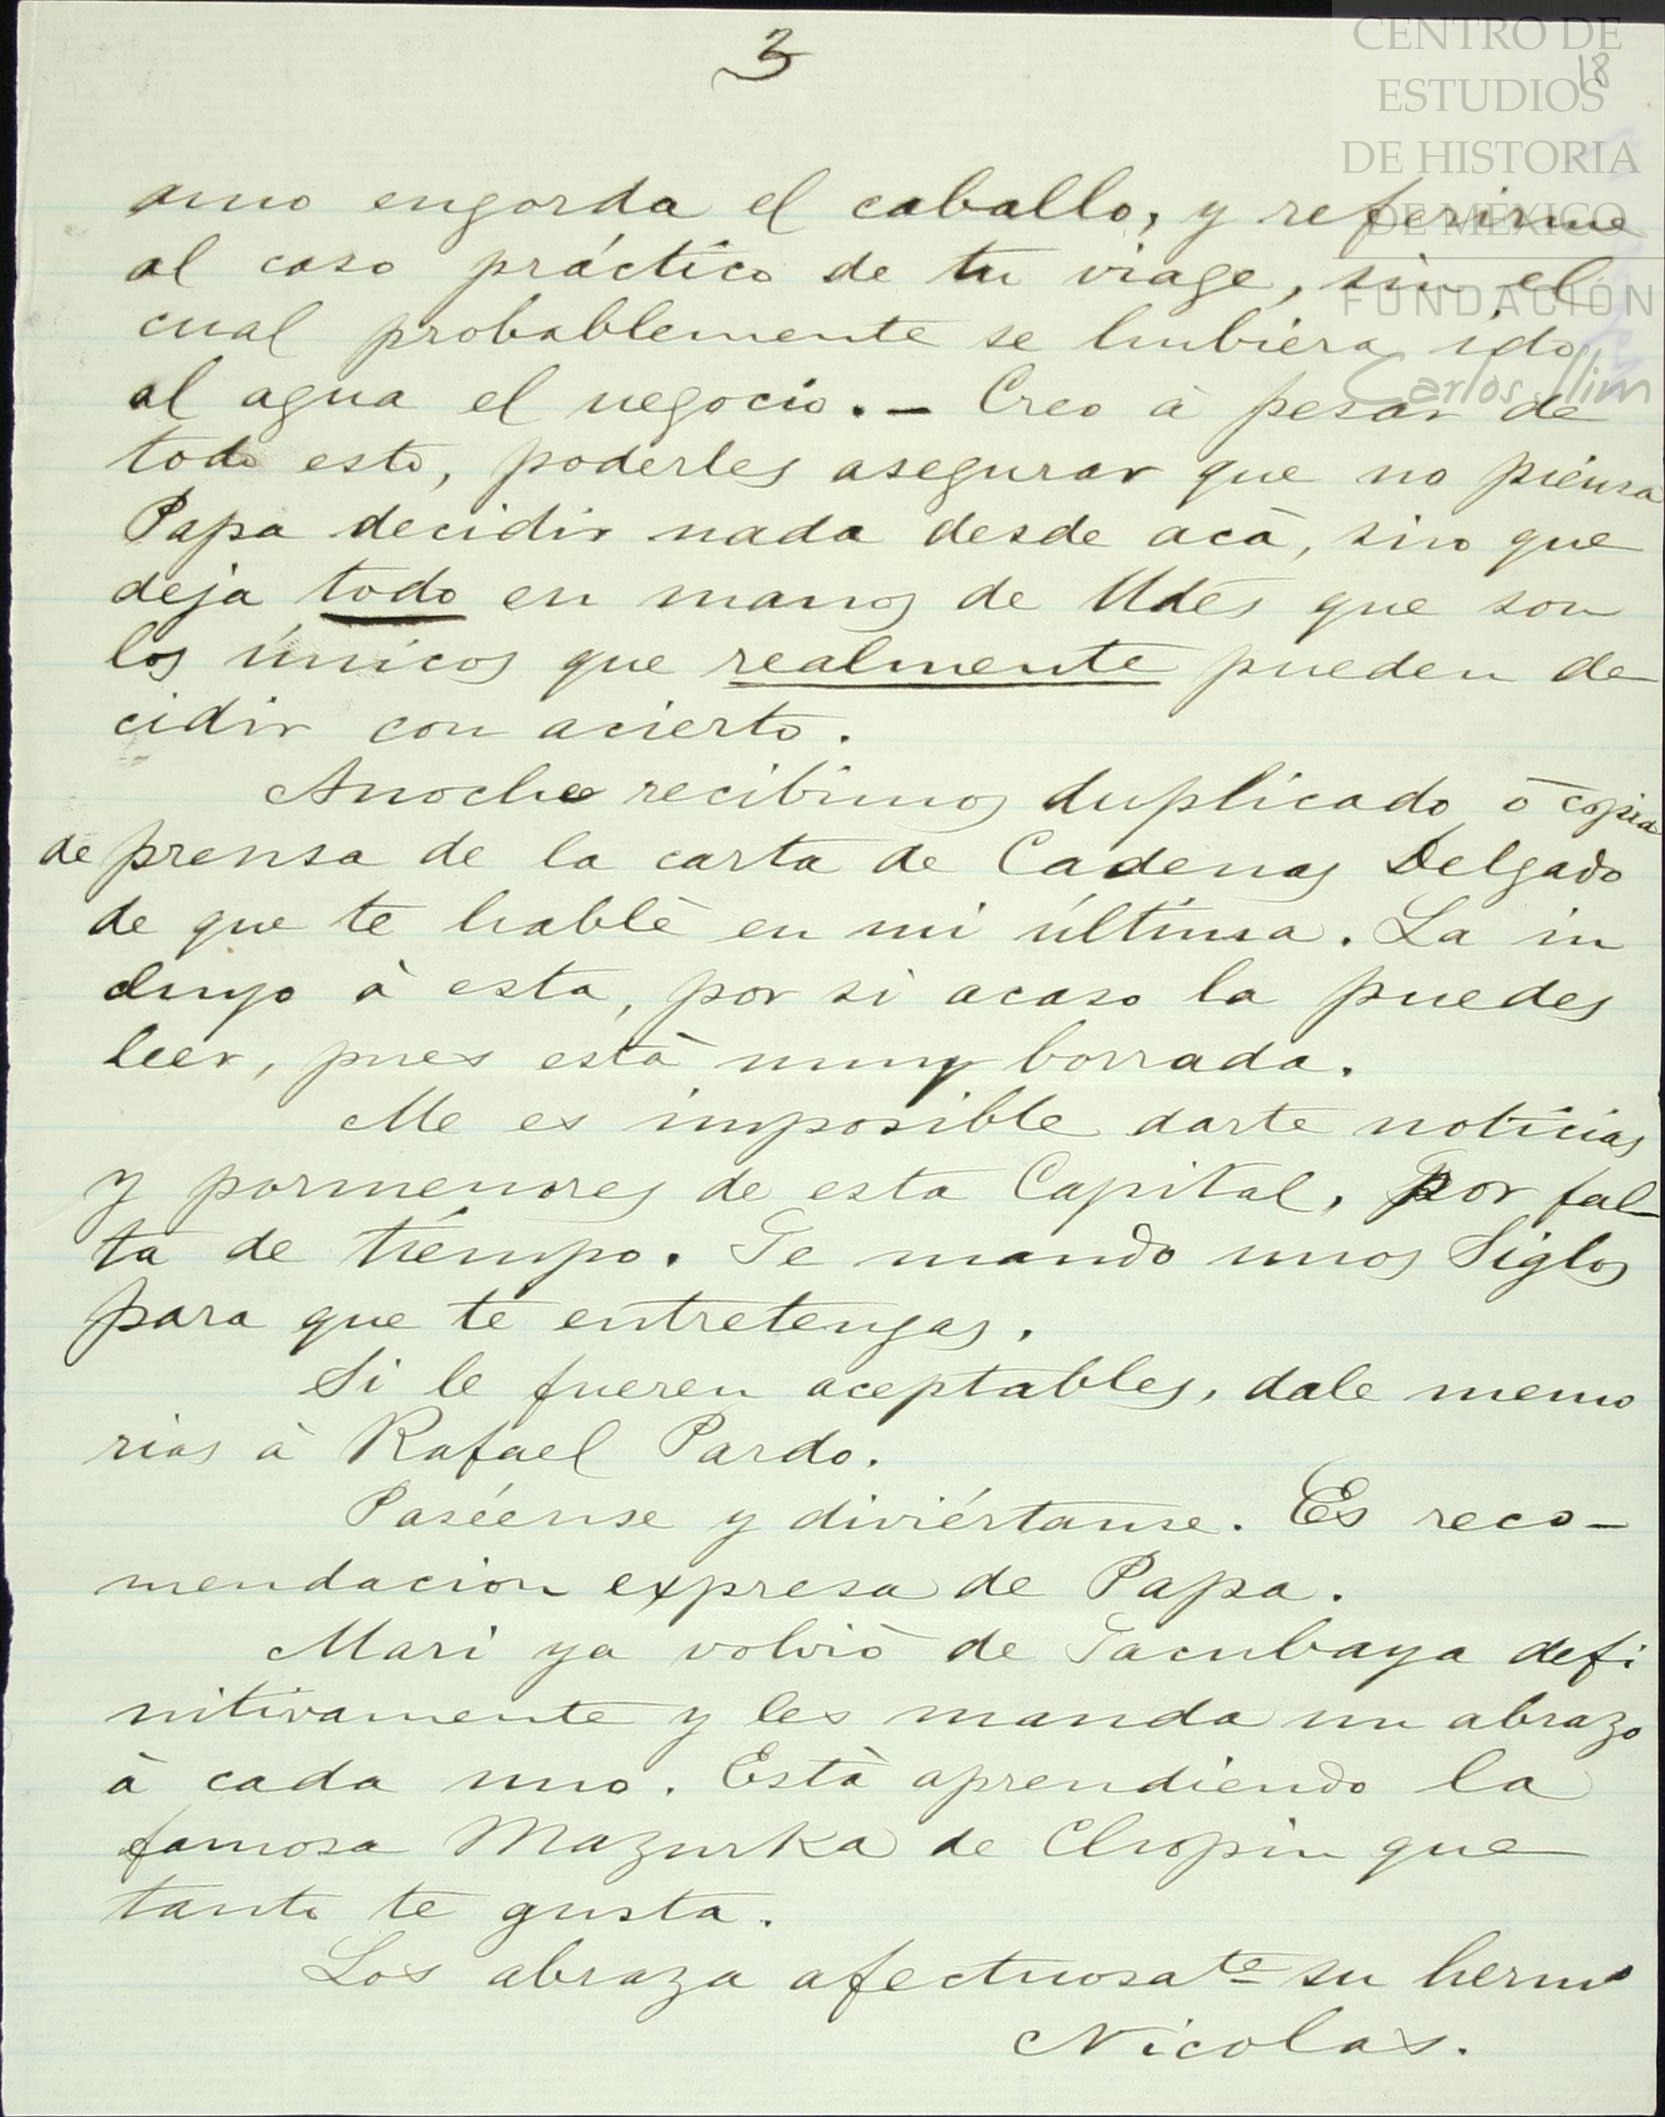 3
18
CENTRO DE
ESTUDIOS
DE HISTORIA
DE MÉXICO
FUNDACIÓN
Carlos Slim
amo engorda el caballo, y referirme
al caso práctico de tu viage, sin el
cual probablemente se hubiera ido
al agua el negocio. — Creo à pesar de
todo esto, poderles asegurar que no piensa
Papa decidir nada desde acà, sino que
deja todo en manos de Udes que son
los únicos que realmente pueden de
cidir con acierto.
Anoche recibimos duplicado ò copia
de prensa de la carta de Cadenas Delgado
de que te hablè en mi última. La in
cluyo à esta, por si acaso la puedes
leer, pues està muy borrada.
Me es imposible darte noticias
y pormenores de esta Capital, por fal-
ta de tiempo. Te mando unos Siglos
para que te entretengas.
Si le fueren aceptables, dale memo
rias à Rafael Pardo.
Paséense y diviértanse. Es reco-
mendacion expresa de Papa.
Mari ya volviò de Tacubaya defi
nitivamente y les manda un abrazo
à cada uno. Està aprendiendo la
famosa Mazurka de Chopin que
tanto te gusta.
Los abraza afectuosate su hermo
Nicolas.